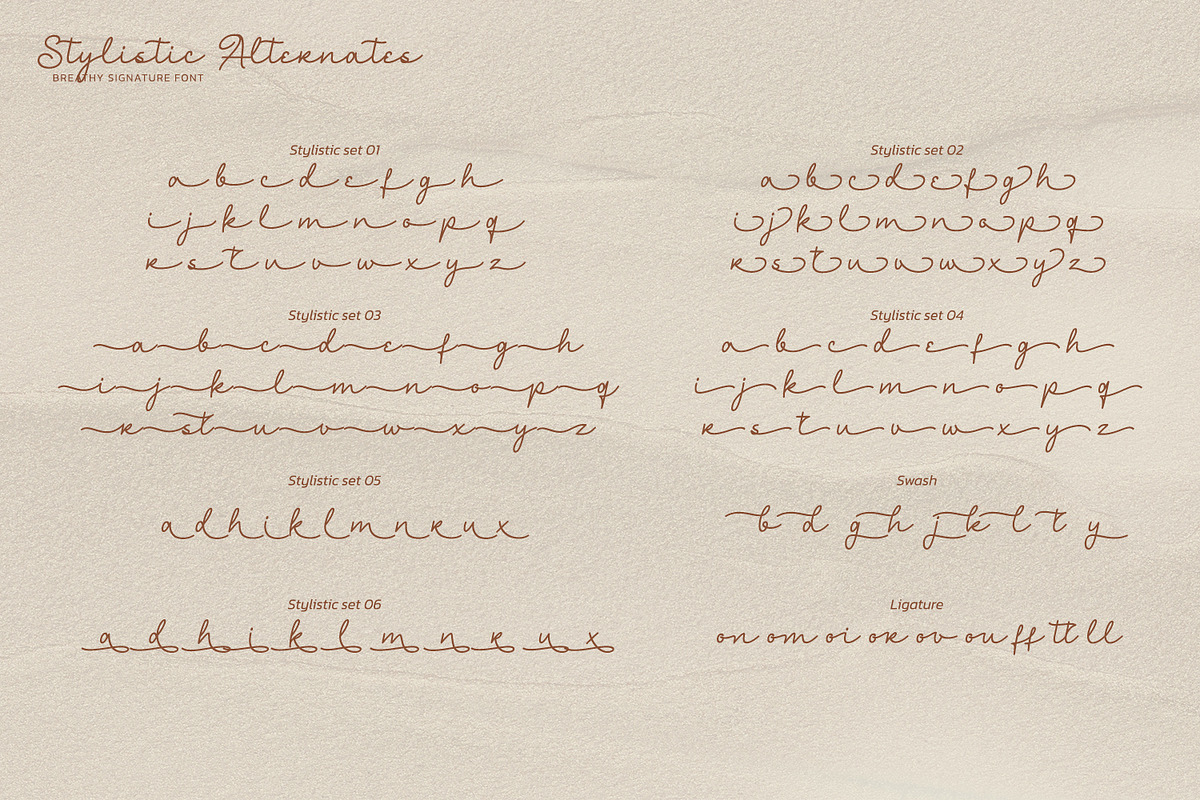 Stylistic Alternates
BREATHY SIGNATURE FONT
Stylistic set 01
a b c d e f g h
i j k l m n o p q
r s t u v w x y z
Stylistic set 02
a b c d e f g h
i j k l m n o p q
r s t u v w x y z
Stylistic set 03
a b c d e f g h
i j k l m n o p q
r s t u v w x y z
Stylistic set 04
a b c d e f g h
i j k l m n o p q
r s t u v w x y z
Stylistic set 05
a d h i k l m n r u x
Swash
b d g h j k l t y
Stylistic set 06
a d h i k l m n r u x
Ligature
on om oi or ov ou ff tt ll